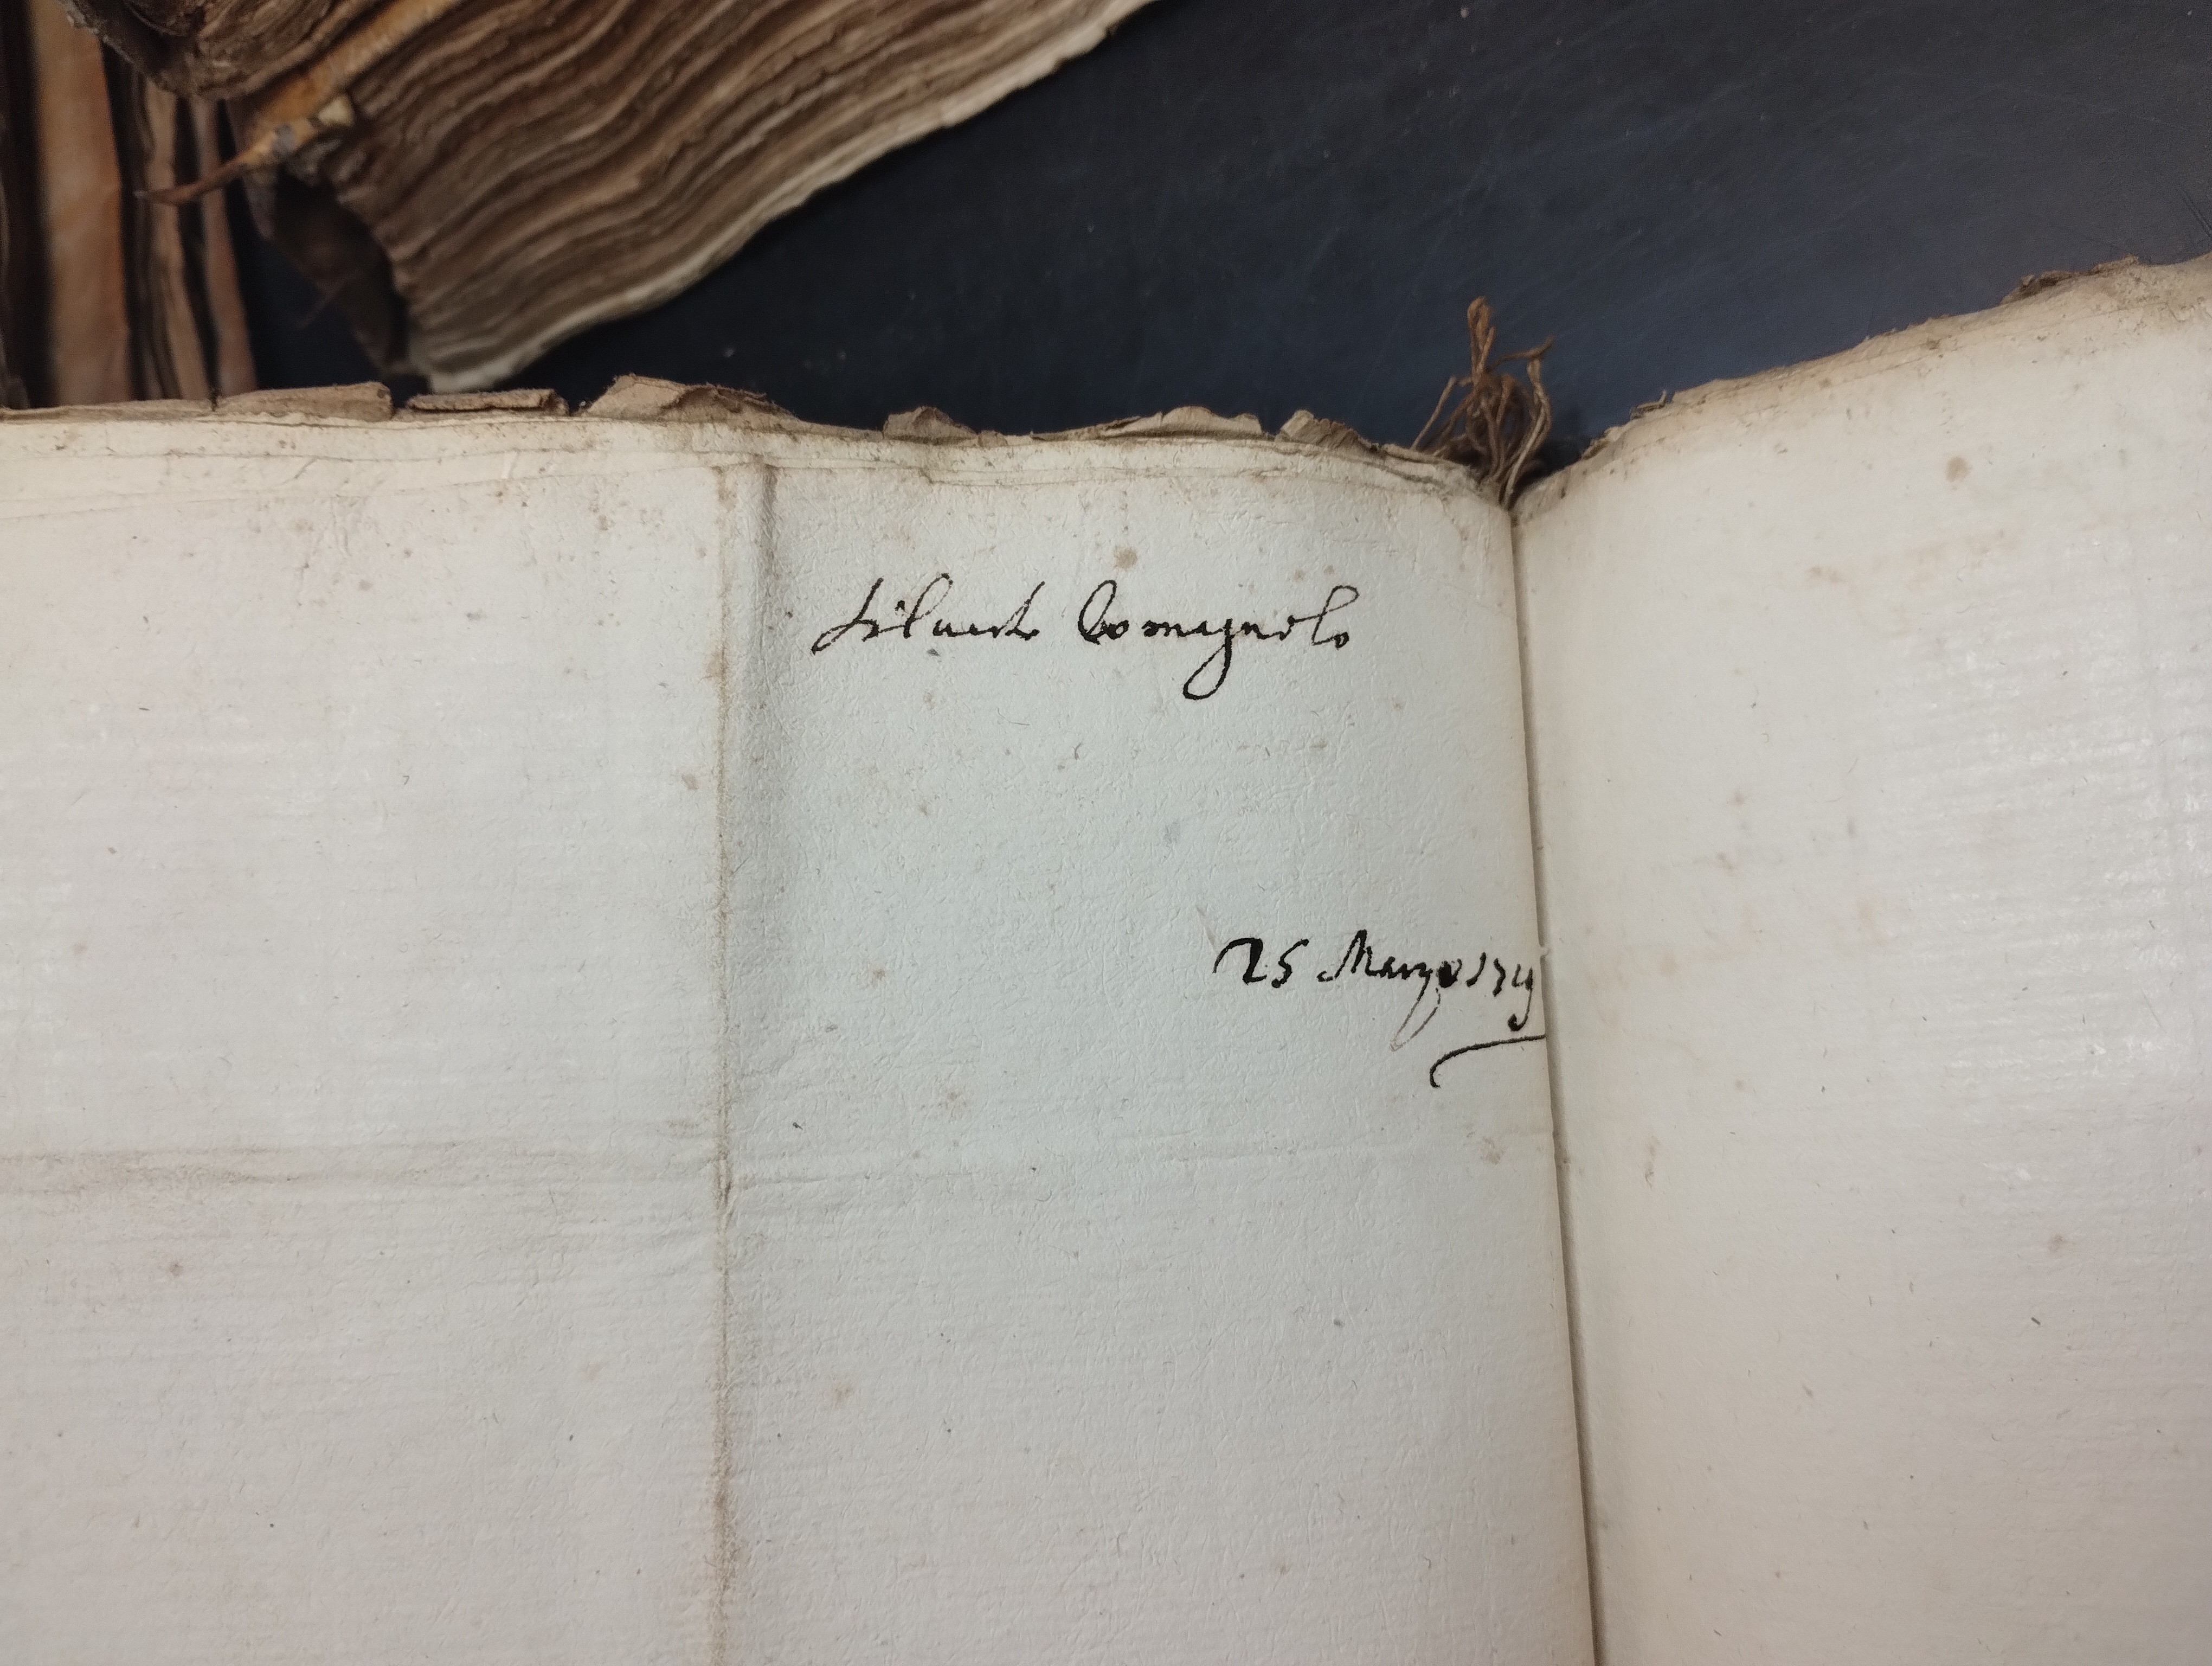 Silvestro Romagnolo
25 Marzo 1719